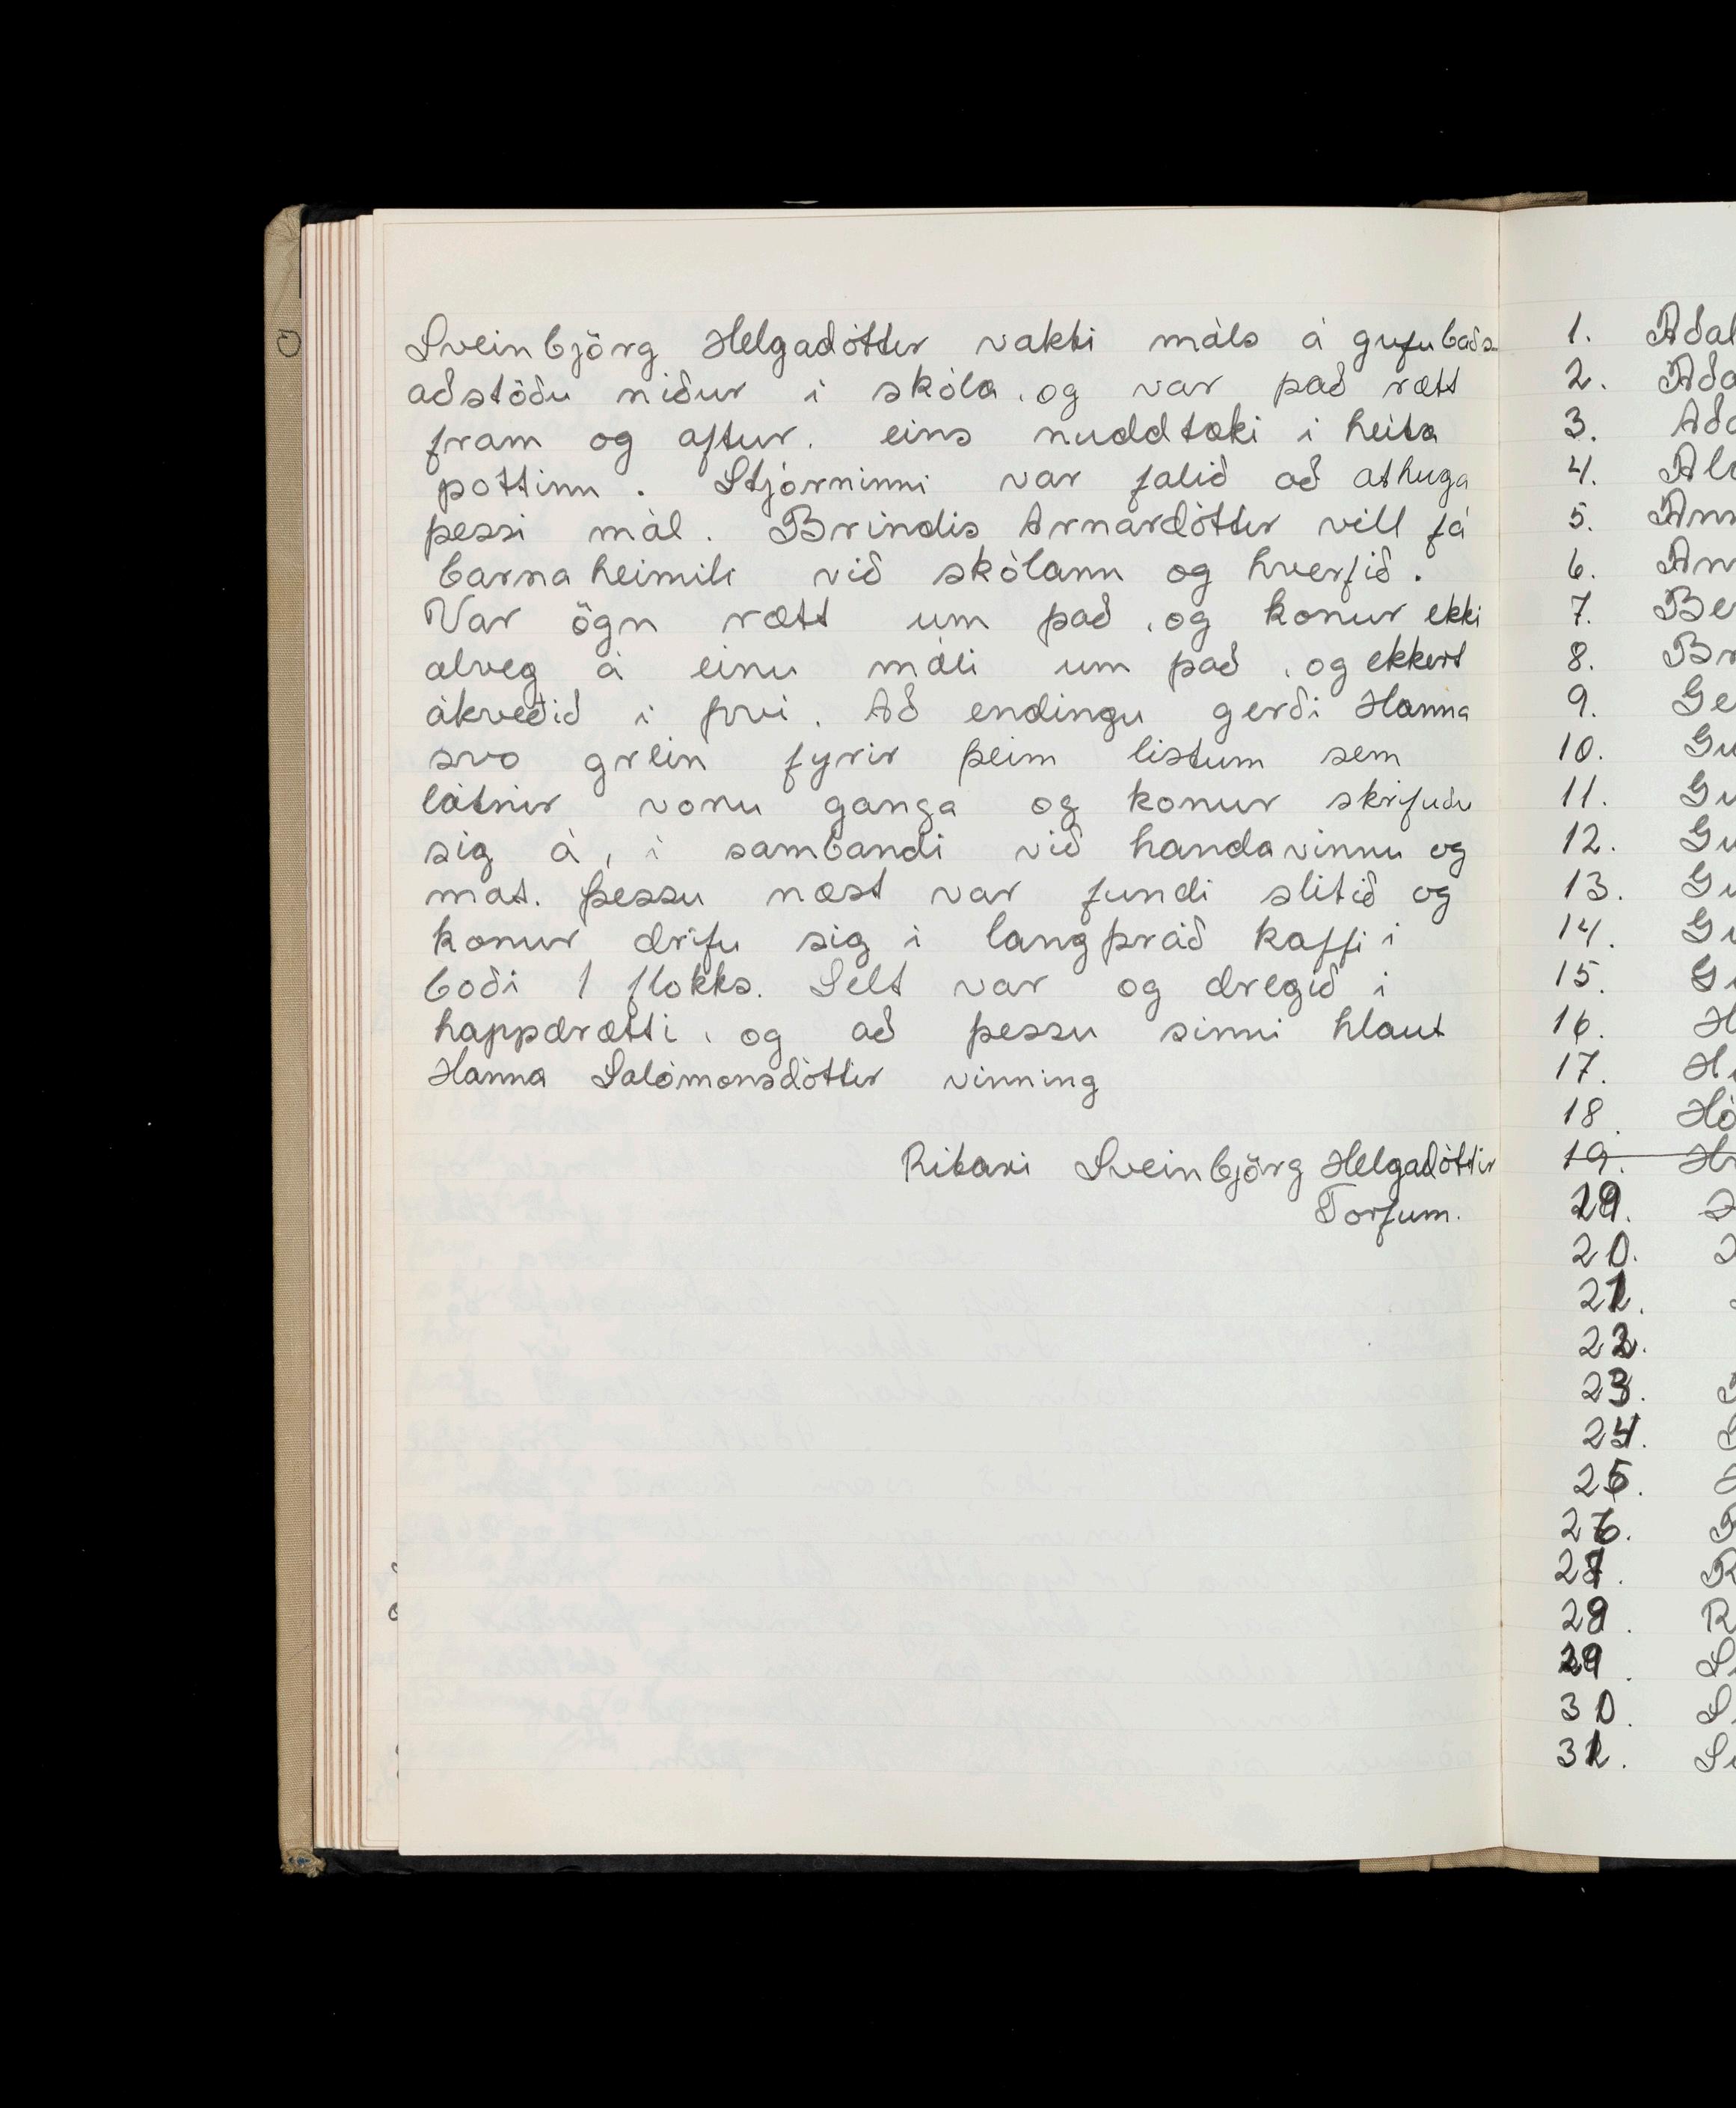 Sveinbjörg Helgadóttir vakti máls á gufubaðs-
aðstöðu niður í skóla, og var það rætt
fram og aftur. eins nuddtæki í heita
pottinn. Stjórninni var falið að athuga
þessi mál. Brindís Arnardóttir vill fá
barnaheimili við skólann og hverfið.
Var ögn rætt um það, og konur ekki
alveg á einu máli um það, og ekkert
ákveðið í því. Að endingu gerði Hanna
svo grein fyrir þeim listum sem
látnir voru ganga og konur skrifuðu
sig á, í sambandi við handavinnu og
mat. Þessu næst var fundi slitið og
konur drifu sig í langþráð kaffi í
boði 1 flokks. Selt var og dregið í
happdrætti, og að þessu sinni hlaut
Hanna Salómonsdóttir vinning
Ritari Sveinbjörg Helgadóttir
Torfum.
1. Aðal
2. Aða
3. Aða
4.
5. Ann
6.
7. Be
8. Br
9. Ge
10. Gu
11. Gu
12. Gu
13. Gu
14. Gu
15.
16. H
17.
18. Hó
19.
19.
20.
21.
22.
23.
24.
25.
26.
27. R
28. R
29.
30. S
31.